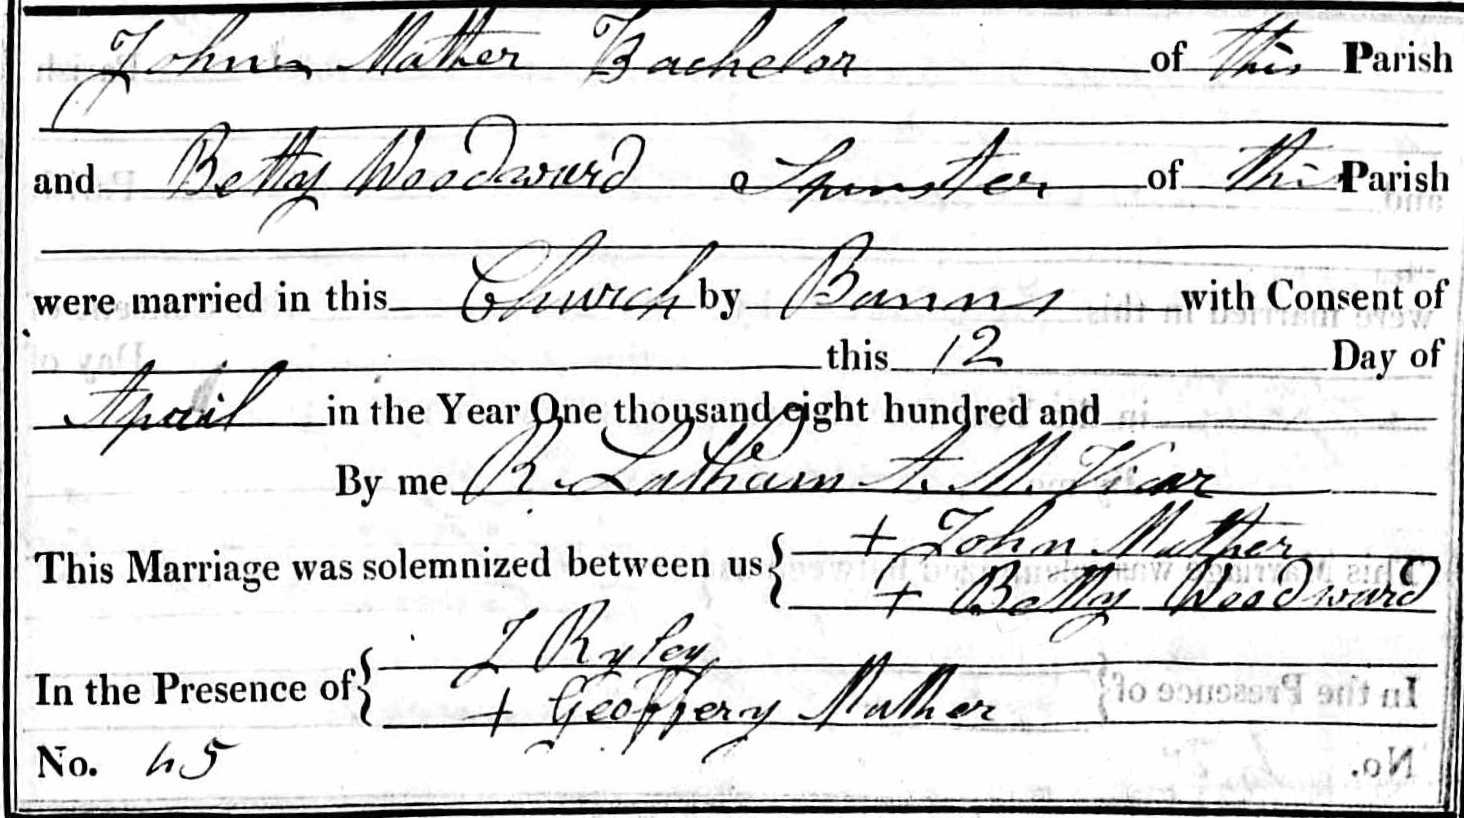 John Mather Bachelor of this Parish
and Betty Woodward Spinster of this Parish
were married in this Church by Banns with Consent of
this 12 Day of
April in the Year One thousand eight hundred and
By me R. Latham A. M. Vicar
This Marriage was solemnized between us { + John Mather
+ Betty Woodward
In the Presence of { J Ryley
+ Geoffery Mather
No. 45